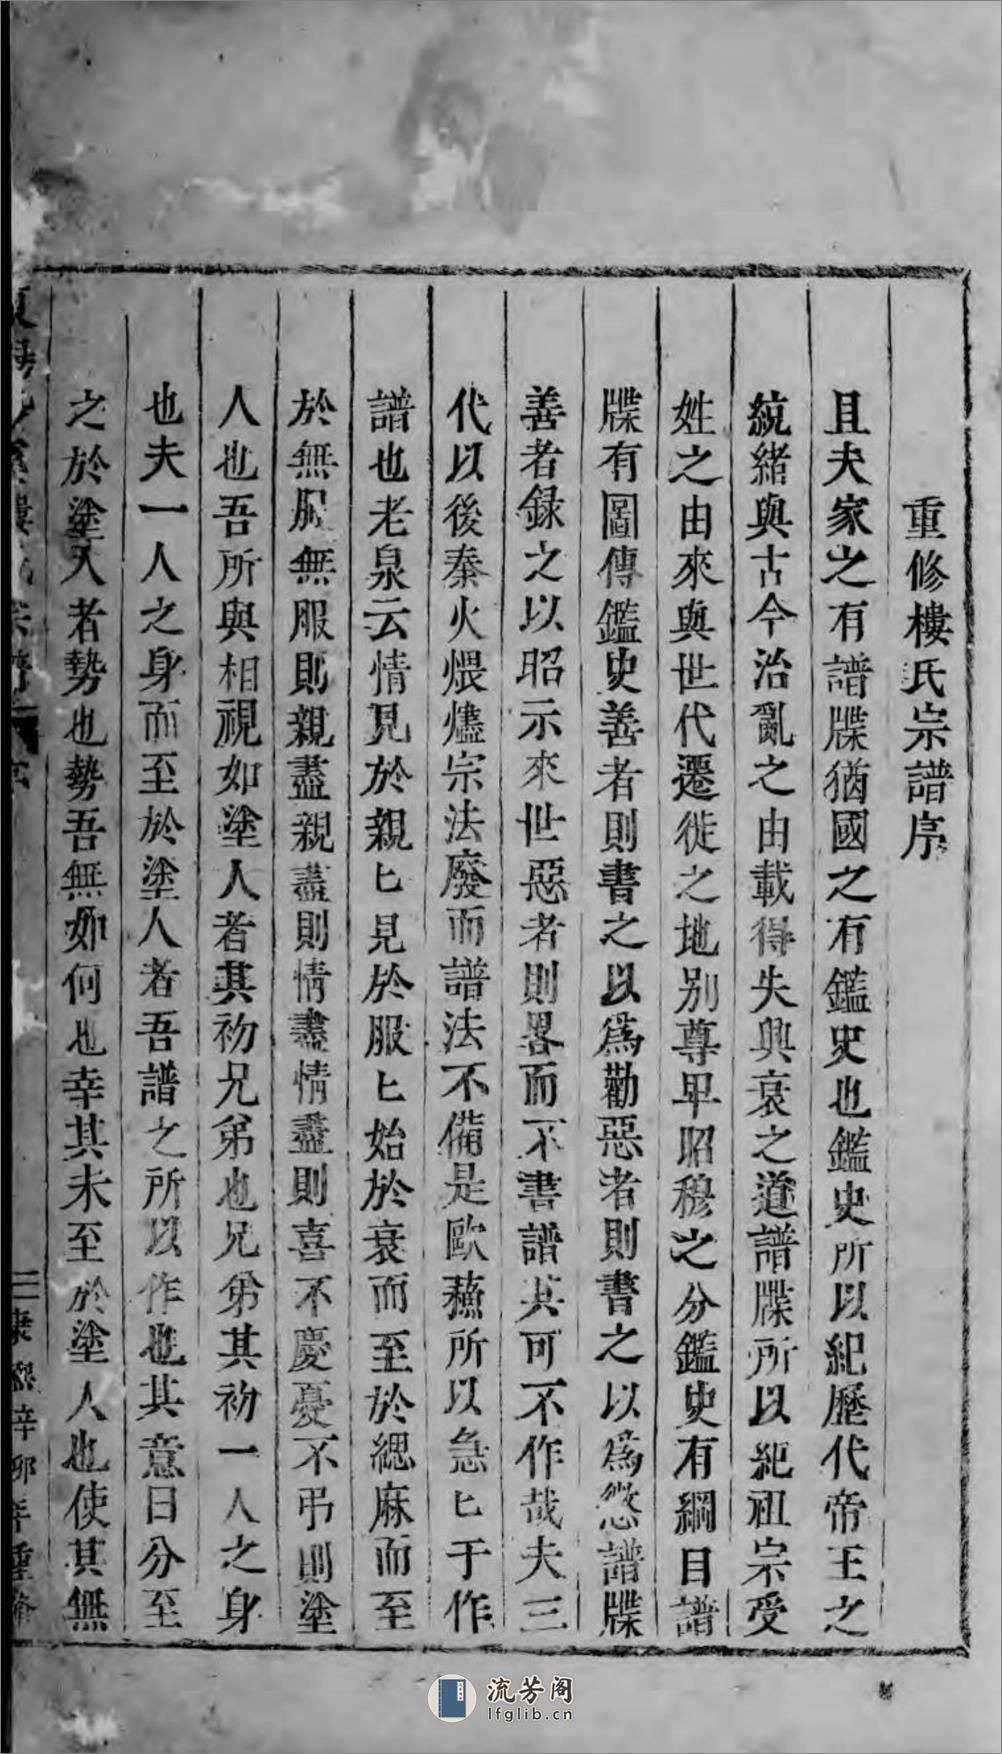 重修樓氏宗譜序
且夫家之有譜牒猶國之有鑑史也鑑史所以紀歷代帝王之
統緒與古今治亂之由載得失興衰之道譜牒所以紀祖宗受
姓之由來與世代遷徙之地別尊卑昭穆之分鑑史有綱目譜
牒有圖傳鑑史善者則書之以為勸惡者則書之以為懲譜牒
善者録之以昭示來世惡者則畧而不書譜其可不作哉夫三
代以後秦火煨燼宗法廢而譜法不備是歐蘓所以急匕于作
譜也老泉云情見於親匕見於服匕始於衰而至於緦麻而至
於無服無服則親盡親盡則情盡情盡則喜不慶憂不弔則塗
人也吾所與相視如塗人者其初兄弟也兄弟其初一人之身
也夫一人之身而至於塗人者吾譜之所以作也其意曰分至
之於塗人者勢也勢吾無如何也幸其未至於塗人也使其無
樓氏宗譜 序
三 康熙辛卯年重修
流芳阁
lfglib.cn